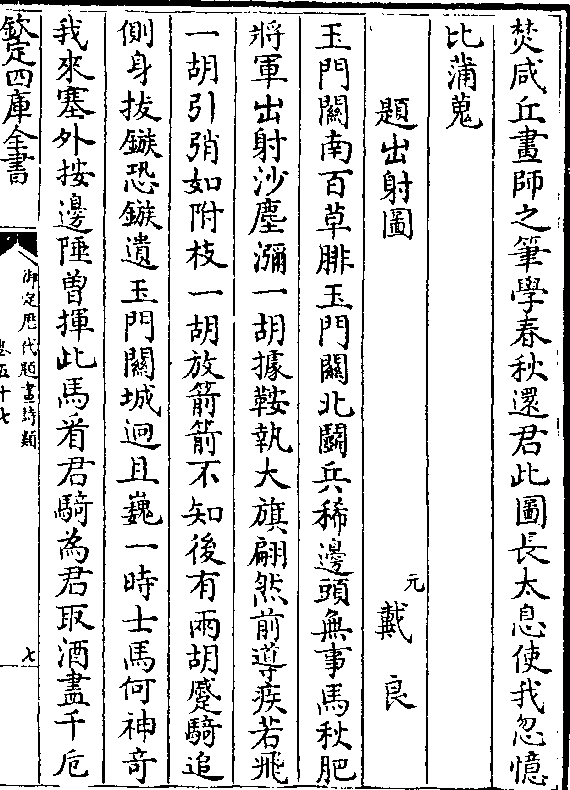 焚咸丘畫師之筆學春秋還君此圖長太息使我忽憶
比蒲蒐
題出射圖　元　戴良
玉門關南百草腓玉門關北鬭兵稀邊頭無事馬秋肥
將軍出射沙塵瀰一胡據鞍執大旗翩然前導疾若飛
一胡引弰如附枝一胡放箭箭不知後有兩胡蹙騎追
側身拔鏃恐鏃遺玉門關城迥且巍一時士馬何神奇
我來塞外按邊陲曽揮此馬看君騎為君取酒盡千卮
欽定四庫全書
御定歷代題畫詩類
卷五十七
七